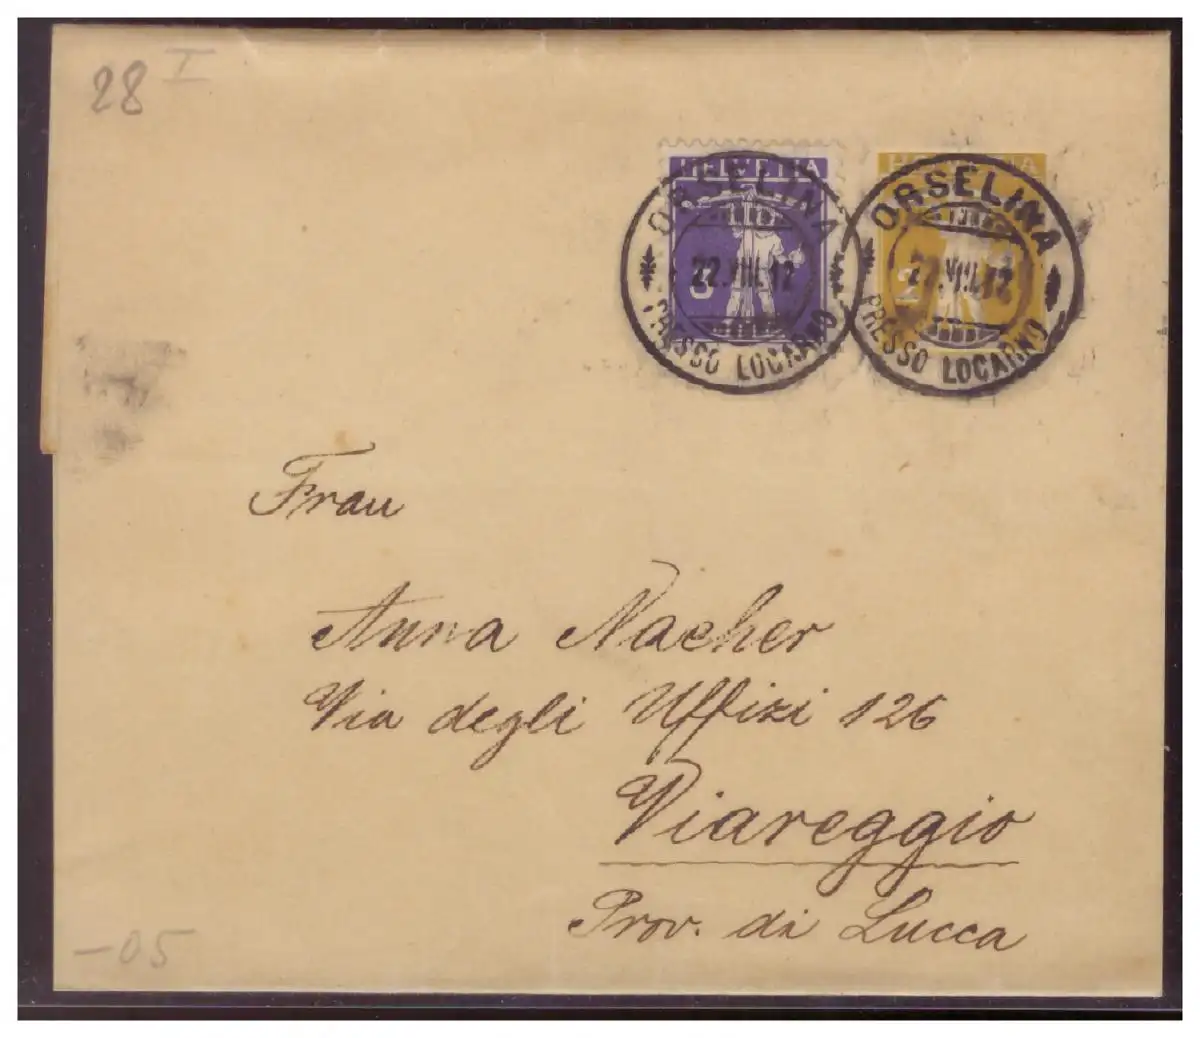 28 I
HELVETIA
3
ORSELINA
22.VIII.12
PRESSO LOCARNO
HELVETIA
2
ORSELINA
22.VIII.12
PRESSO LOCARNO
Frau
Anna Nacher
Via degli Uffizi 126
Viareggio
Prov. di Lucca
-05